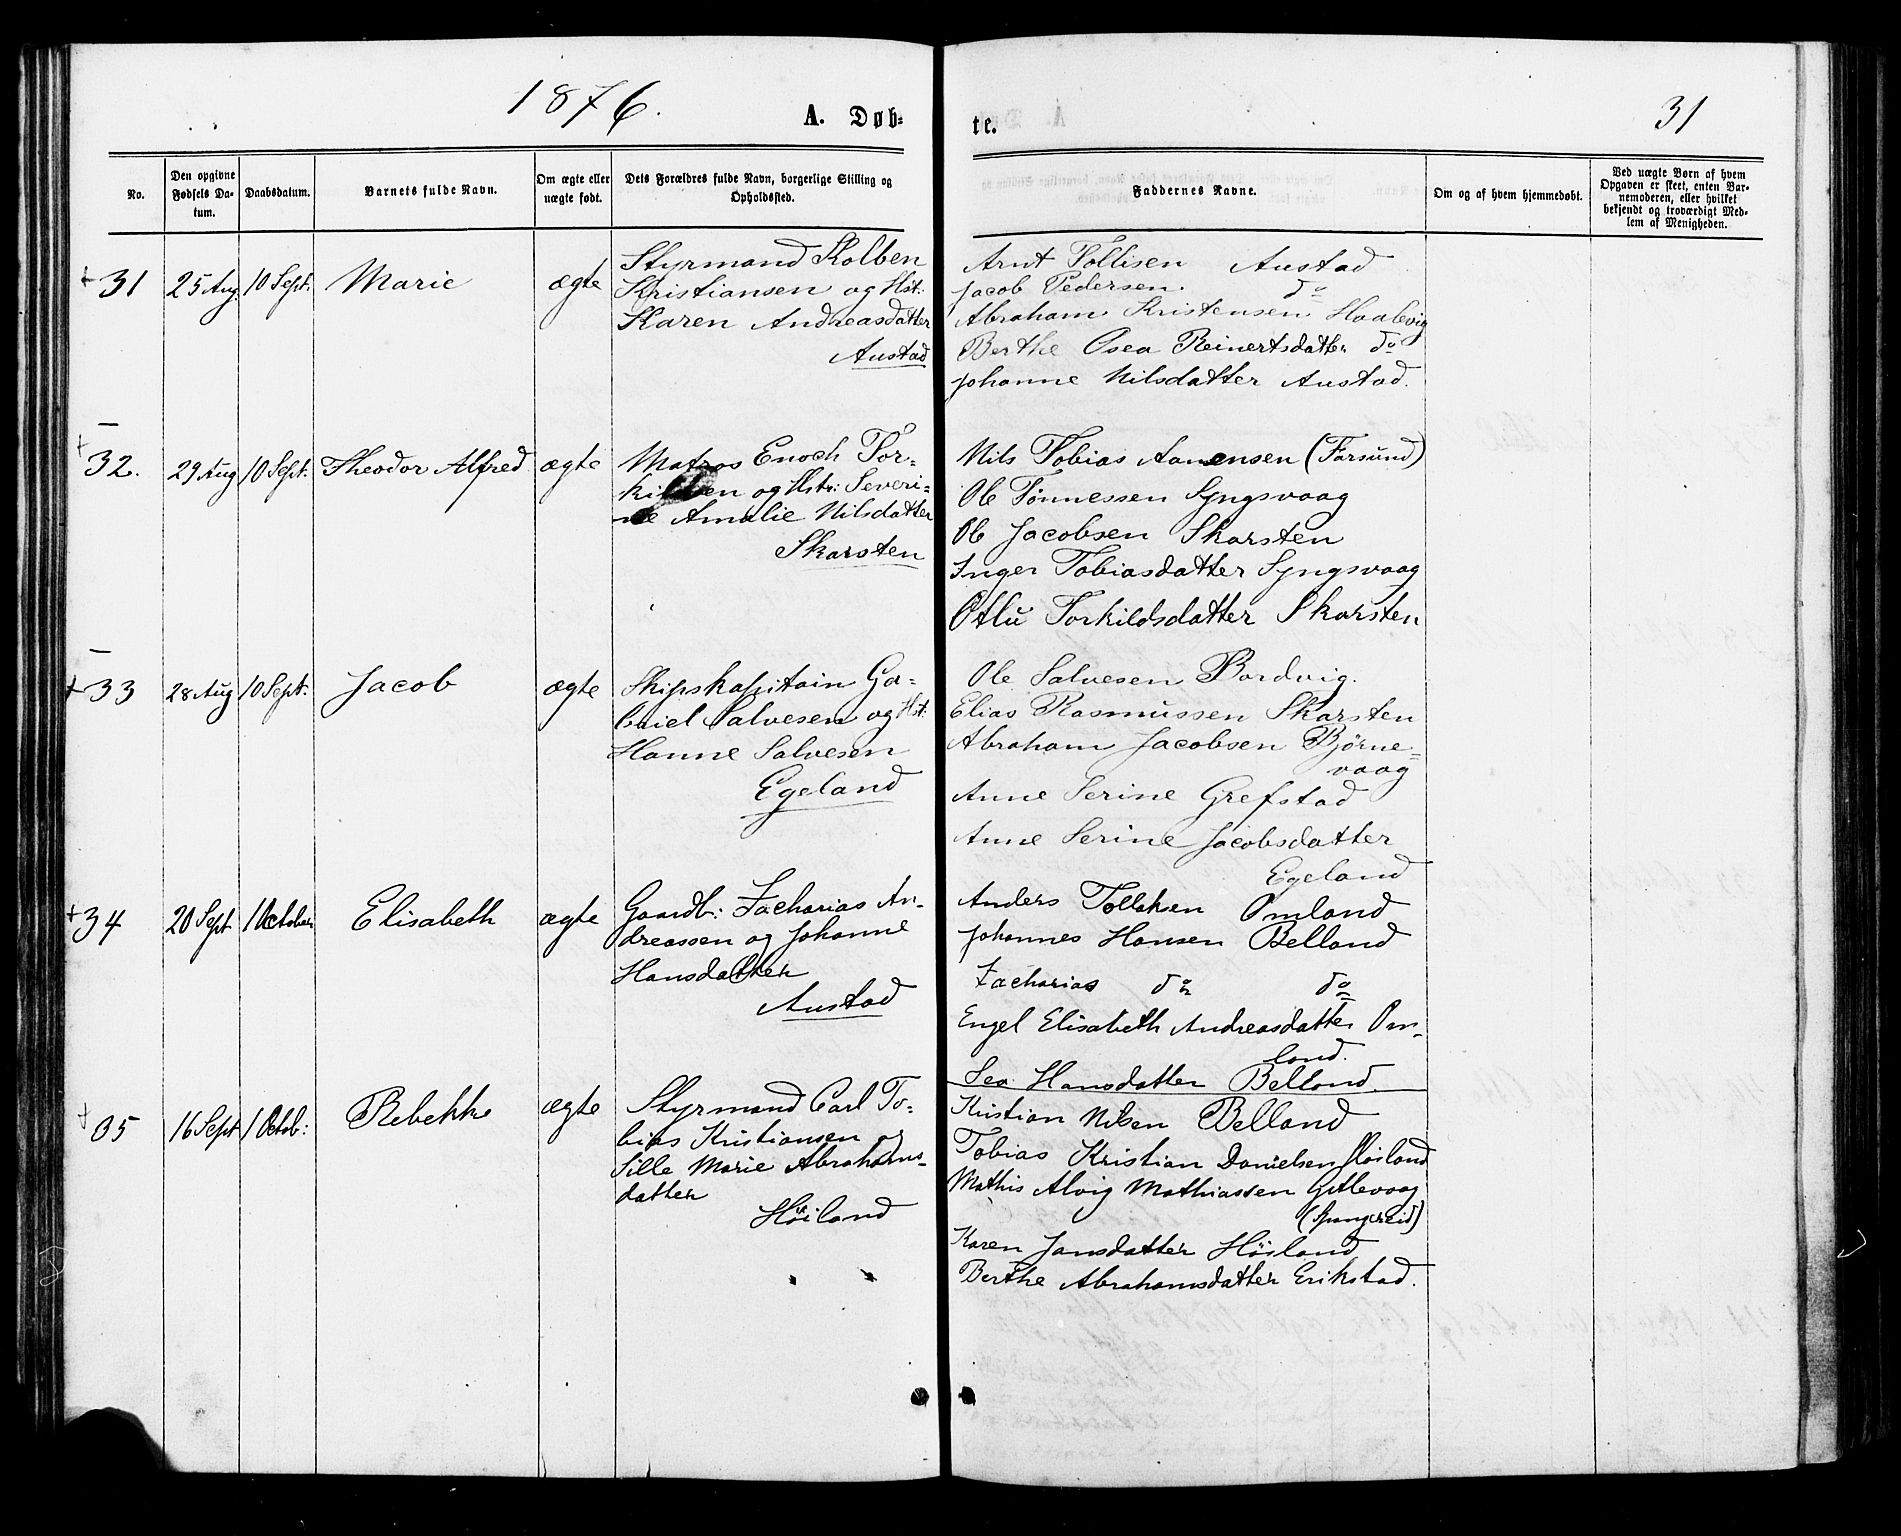 1876.
A. Døb-
te.
31
No.
Den opgivne Fødsels Da-tum.
Daabsdatum.
Barnets fulde Navn.
Om ægte eller uægte født.
Dets Forældres fulde Navn, borgerlige Stilling og Opholdssted.
Faddernes Navne.
Om og af hvem hjemmedøbt.
Ved uægte Børn af hvem Opgaven er skeet, enten Bar-nemoderen, eller hvilket bekjendt og troværdigt Med-lem af Menigheden.
+ 31 25 Aug. 10 Sept. Marie ægte
Styrmand Kolben
Kristiansen og Hst:
Karen Andreasdatter
Austad
Arnt Tollisen Austad
Jacob Pedersen. do
Abraham Kristensen Haalevig
Berthe Osea Reinertsdatter do
Johanne Nilsdatter Austad.
+ 32. 29 Aug 10 Sept: Theodor Alfred ægte
Matros Enoch Tor=
kildsen og Hstr: Severi=
ne Amalie Nilsdatter
Skarsten
Nils Tobias Aanensen (Farsund)
Ole Tønnessen Syngsvaag
Ole Jacobsen Skarsten
Inger Tobiasdatter Syngsvaag
Torkildsdatter Skarsten
+ 33 28 Aug 10 Sept: Jacob ægte
Skipskapitain Ga=
briel Salvesen og Hst:
Hanne Salvesen
Egeland
Ole Salvesen Bordvig.
Elias Rasmussen Skarsten
Abraham Jacobsen Bjørne=
vaag
Anne Serine Grefstad
Anne Serine Jacobsdatter
Egeland
+ 34 20 Sept 1 October Elisabeth ægte
Gaardb: Zacharias An-
dreassen og Johanne
Hansdatter
Austad
Anders Tollaksen Omland
Johannes Hansen Belland
Zacharias do do
Engel Elisabeth Andreasdatter Om-
land.
Sea Hansdatter Belland.
+ 35 16 Sept 1 Octob: Rebekke ægte
Styrmand Carl To=
bias Kristiansen og
Sille Marie Abrahams-
datter
Høiland
Kristian Nilsen Belland
Tobias Kristian Danielsen Høiland
Mathis Alvig Mathiassen Gitlevaag
(Spangereid)
Karen Jansdatter Høiland
Berthe Abrahamsdatter Erikstad.